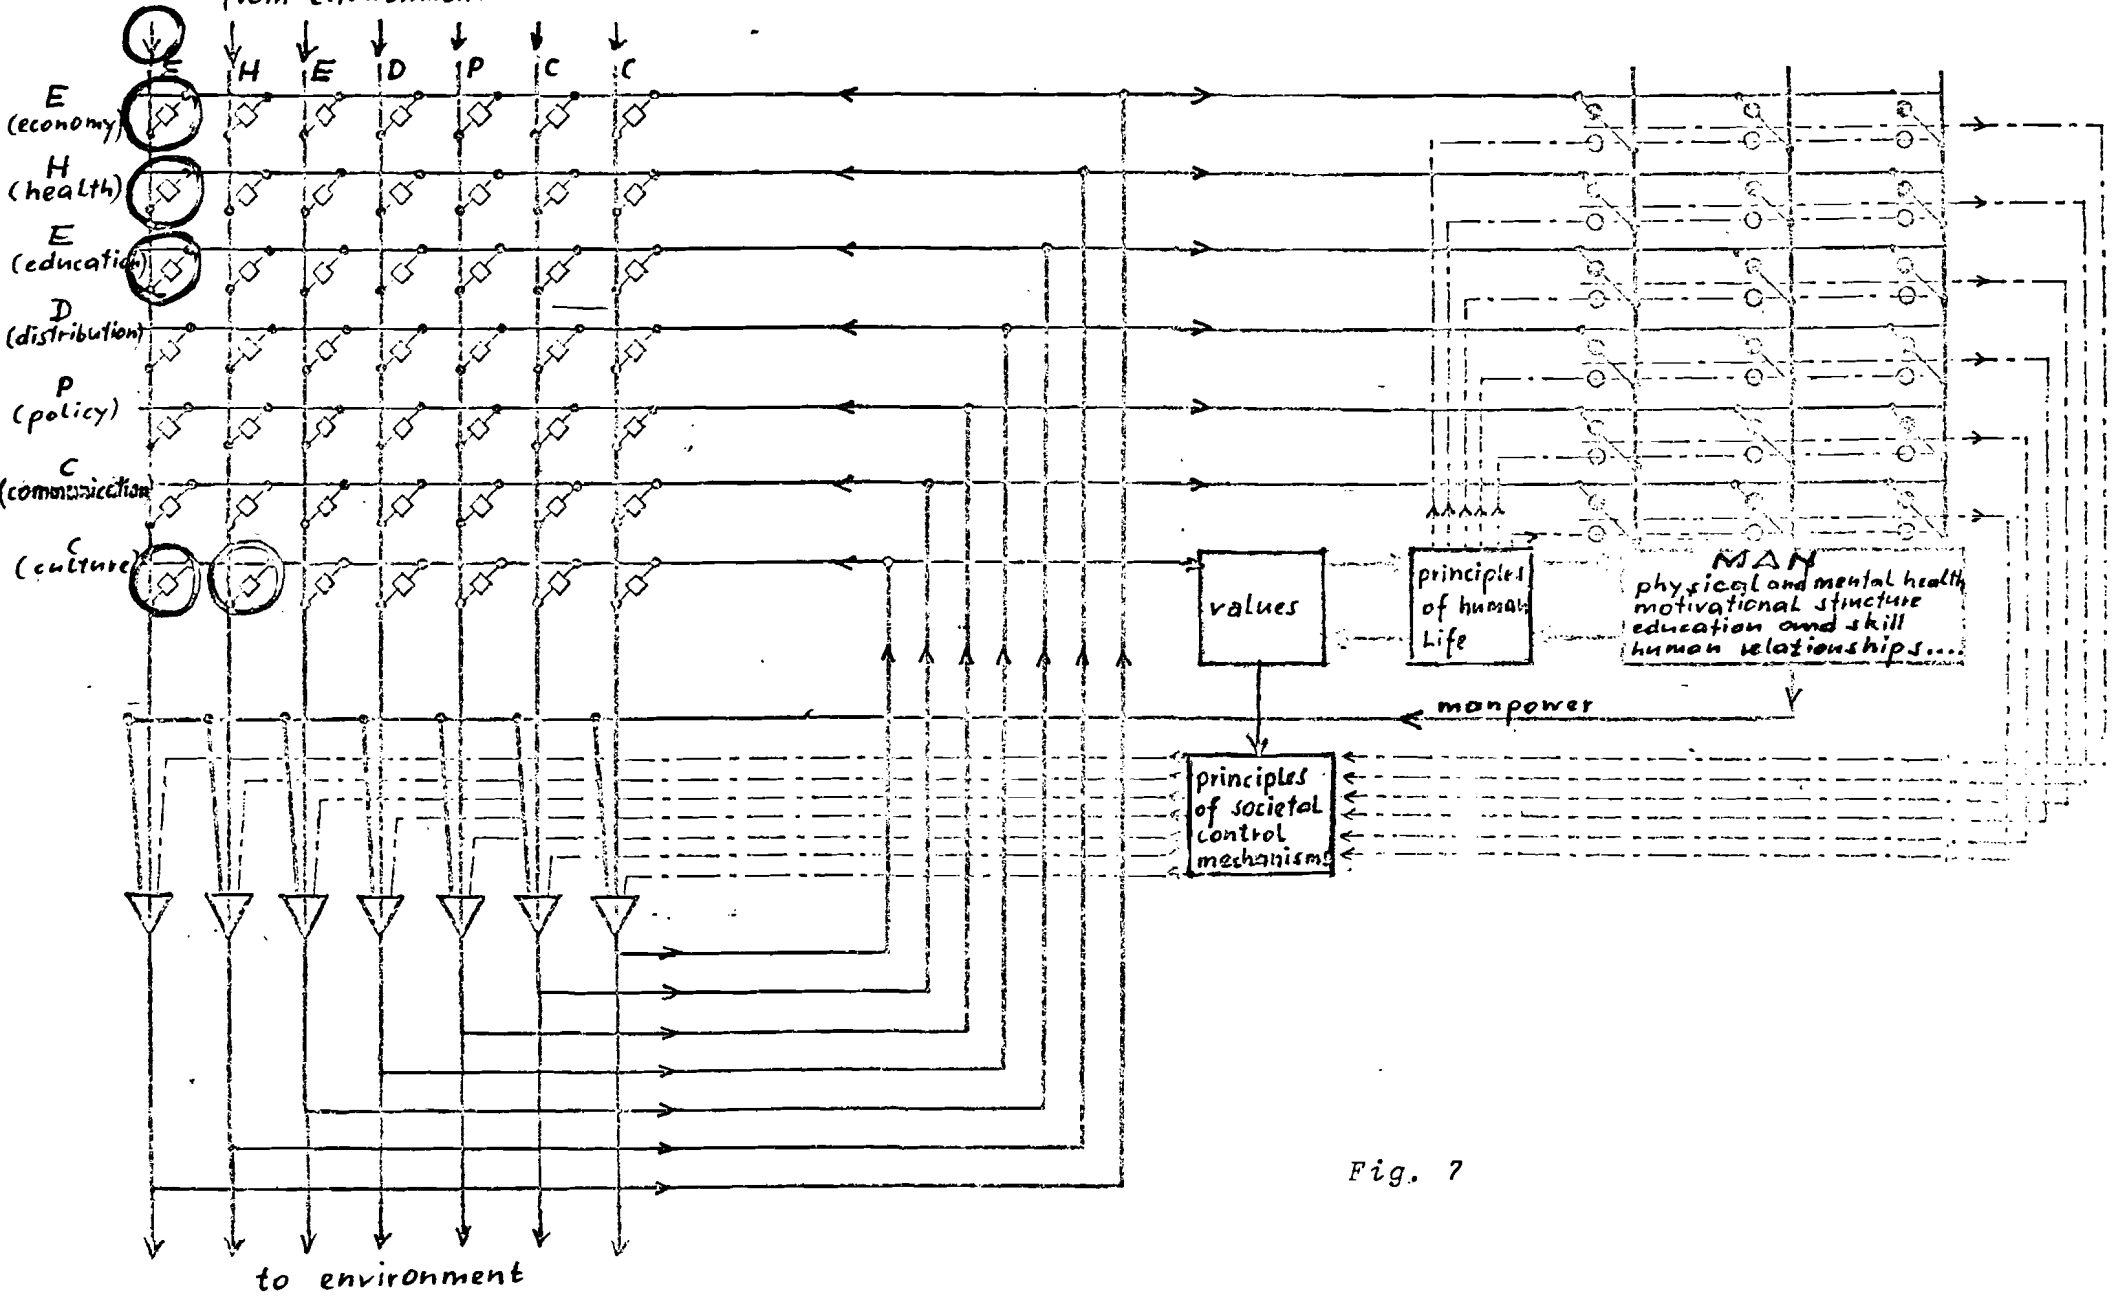 from environment
E H E D P C C
E
(economy)
H
(health)
E
(education)
D
(distribution)
P
(policy)
C
(communication)
C
(culture)
values
principles
of human
Life
MAN
physical and mental health
motivational structure
education and skill
human relationships....
manpower
principles
of societal
control
mechanisms
Fig. 7
to environment